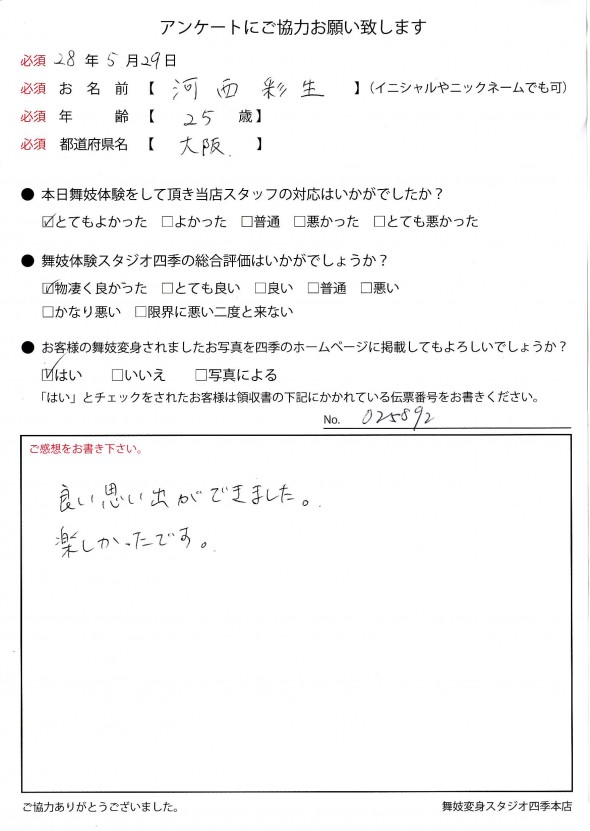 アンケートにご協力お願い致します
必須 28 年 5 月 29 日
必須 お 名 前 【 河西彩生 】（イニシャルやニックネームでも可）
必須 年 齢 【 25 歳】
必須 都道府県名 【 大阪 】
● 本日舞妓体験をして頂き当店スタッフの対応はいかがでしたか？
☑とてもよかった □よかった □普通 □悪かった □とても悪かった
● 舞妓体験スタジオ四季の総合評価はいかがでしょうか？
☑物凄く良かった □とても良い □良い □普通 □悪い
□かなり悪い □限界に悪い二度と来ない
● お客様の舞妓変身されましたお写真を四季のホームページに掲載してもよろしいでしょうか？
☑はい □いいえ □写真による
「はい」とチェックをされたお客様は領収書の下記にかかれている伝票番号をお書きください。
No. 025892
ご感想をお書き下さい。
良い思い出ができました。
楽しかったです。
ご協力ありがとうございました。 舞妓変身スタジオ四季本店